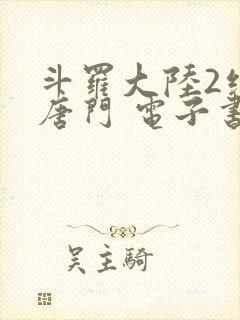 斗羅大陸2
唐門 電子書
吴主騎